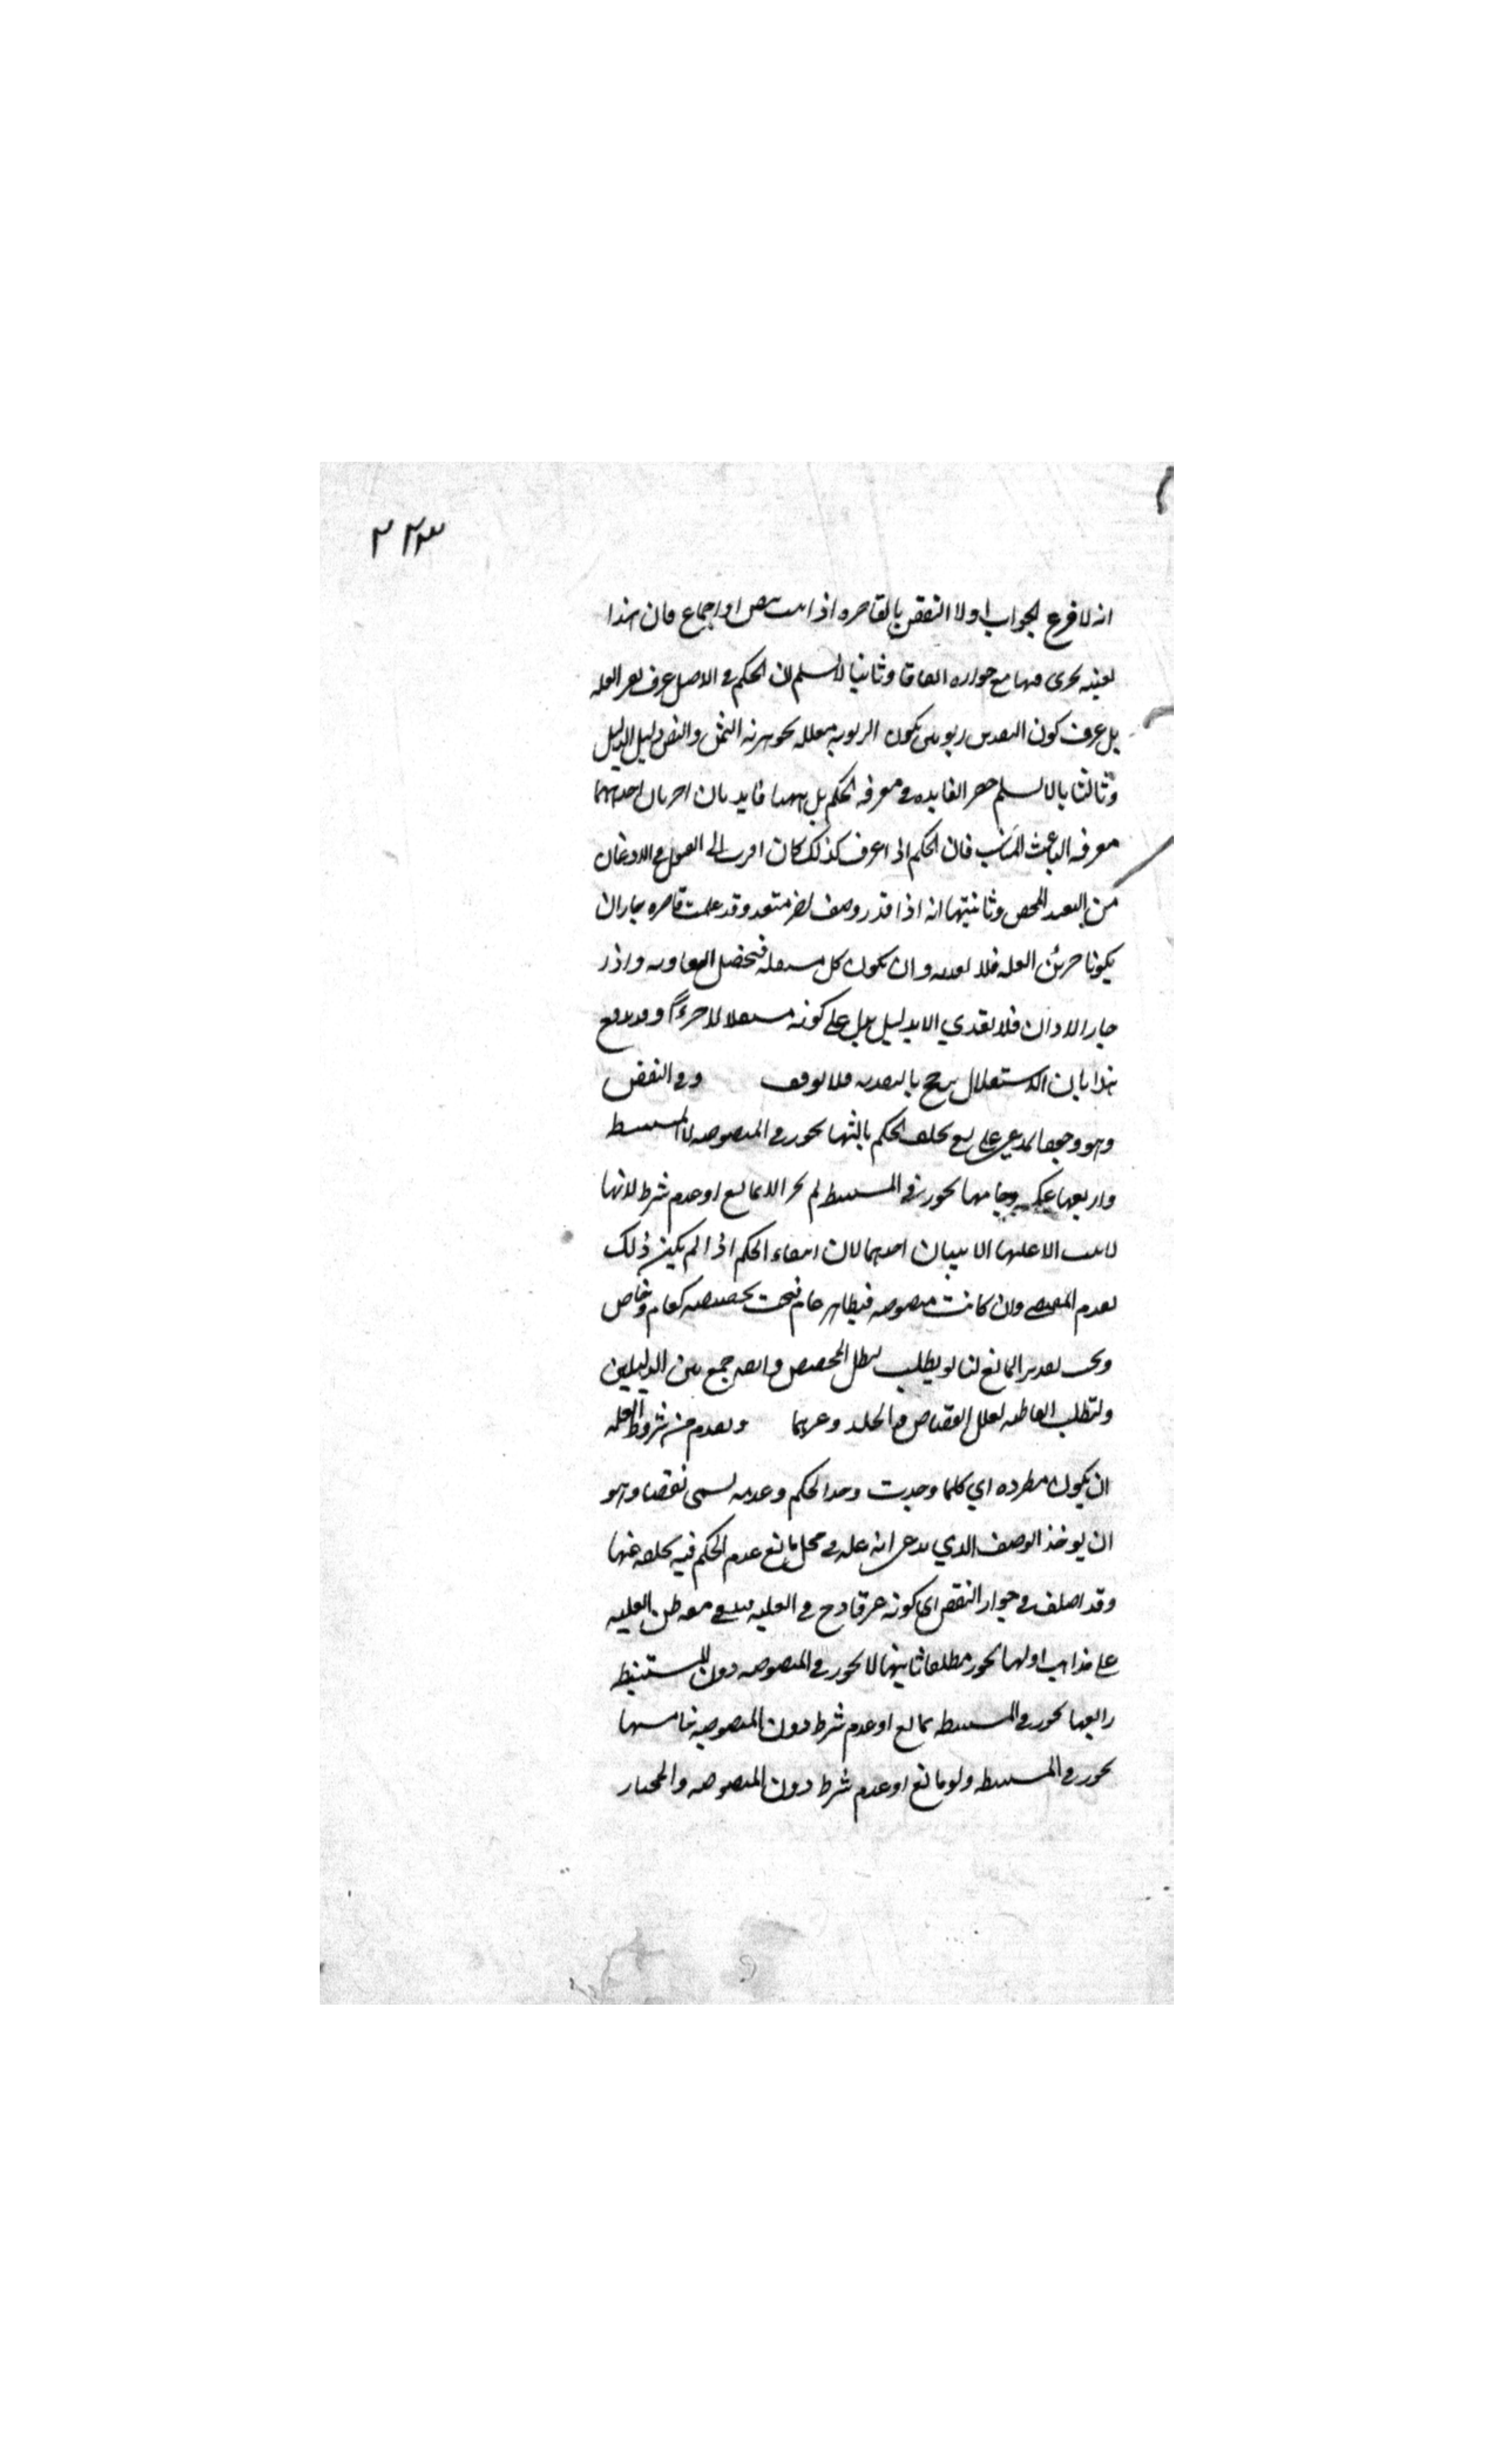 ٢٢٣
انه لا فرع الجواب اولا النقض بالقاصره اذا ثبت بنص او اجماع فان هذا
بعينه يجرى فيها مع جوازه اتفاقا وثانيا لا نسلم ان الحكم فى الاصل عرف بغير العله
بل عرف كون النقدين ربويين بكون الربويه معلله بجوهرية الثمن والنص دليل الدليل
وثالثا بالا نسلم حصر الفايده فى معرفه الحكم بل لها فايدتان اخريان احديهما
معرفه الباعث المناسب فان الحكم اذا عرف كذلك كان اقرب الى القبول والاذعان
من التعبد المحض وثانيتها انه اذا قدر وصف اخر متعد وقد علمت قاصره جاز ان
يكونا جزئى العله فلا تعديه وان يكون كل مستقله فتحصل التعديه واذا
جاز الامران فلا تعدي الا بدليل يدل على كونه مستقلا لا جزءاً وقد يدفع
هذا بان الاستقلال يرجح بالتعديه فلا توقف وفى النقض
وهو وجود المدعى عليه مع تخلف الحكم ثالثها يجوز فى المنصوصه لا المستنبطه
واربعها عكسه وخامسها يجوز فى المستنبطه لم يجز الا بمانع او عدم شرط لانها
لا تثبت الا عليها الا ببيان احدهما لان انتفاء الحكم اذا لم يكن ذلك
لعدم المقتضى وان كانت منصوصه فبظاهر عام فيجب تخصيصه كعام وخاص
ويجب تقدير المانع لنا لو بطلت لبطل المخصص وايضا جمع بين الدليلين
ولبطلت القاطعه لعلل القصاص والجلد وغيرهما وتقدم من شروط العله
ان يكون مطرده اي كلما وجدت وجد الحكم وعدمه يسمى نقضا وهو
ان يوخذ الوصف الذي يدعى انه عله فى محل مانع عدم الحكم فيه تخلفه عنها
وقد اختلف فى جواز النقض اى كونه غير قادح فى العليه فيبقى معه ظن العليه
على مذاهب اولها يجوز مطلقا ثانيها لا يجوز فى المنصوصه دون المستنبطه
رابعها يجوز فى المستنبطه بمانع او عدم شرط دون المنصوصه خامسها
يجوز فى المستنبطه ولو مانع او عدم شرط دون المنصوصه والمختار